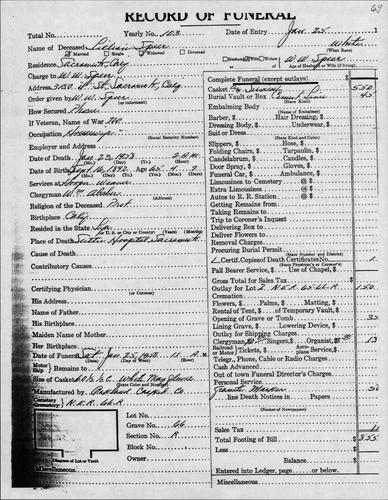 69
RECORD OF FUNERAL
Total No. Yearly No. 103 Date of Entry Jan. 25. 19
Name of Deceased Lillian Speer White
(What Race)
Married Single Widowed Divorced
Husband Wife Widow of W. W. Speer
Residence Sacramento, Calif.
Charge to W. W. Speer
Address St. Sacramento, Calif
Order given by W. W. Speer
(or informant)
How Secured Phone
If Veteran, Name of War No.
Occupation Housewife
(Social Security Number)
Employer and Address
Date of Death Jan. 22, 1958. 2 A.M.
Date of Birth Sept. 16, 1892. Age 65. 4.
Services at
Clergyman Wm.
Religion of the Deceased Prot.
Birthplace Calif.
Resided in the State Life
Place of Death Sutter Hospital Sacramento
Cause of Death
Contributory Causes
Certifying Physician
(or Coroner)
His Address
Name of Father
His Birthplace
Maiden Name of Mother
Her Birthplace
Date of Funeral Sat. Jan. 25, 1958. 11. A. M.
Motor Ship Remains to
Size of Casket White
(State Color and Number)
Manufactured by Oakland Casket Co.
Cemetery
Lot No.
Grave No. 66
Section No. R
Block No.
Owner
Diagram of Lot or Vault
Miscellaneous
Complete Funeral (except outlays) $
Casket & Service 550
Burial Vault or Box 45
(State Kind)
Embalming Body
(Name of Embalmer)
Barber, $ Hair Dressing; $
Dressing Body, $ Underwear, $
Suit or Dress
(State Kind and Color)
Slippers, $ Hose, $
Folding Chairs, $ Tarpaulin, $
Candelabrum, $ Candles, $
Door Spray, $ Gloves, $
Funeral Car, $ Ambulance, $
Limousines to Cemetery @ $
Extra Limousines @ $
Autos to R. R. Station @ $
Getting Remains from
Taking Remains to
Trip to Coroner's Inquest
Delivering Box to
Deliver Flowers to
Removal Charges
Procuring Burial Permit
(State Number and District)
1 Certif. Copies of Death Certificates No. 1
Pall Bearer Service, $ Use of Chapel, $
Gross Total for Sales Tax $
Outlay for Lot 150
Cremation
Flowers, $ Palms, $ Matting, $
Rental of Tent, $ of Temporary Vault, $
Opening of Grave or Tomb
Lining Grave, $ Lowering Device, $
Outlay for Shipping Charges
Clergyman, $ Singers, $ Organist, $ 13
Railroad or Motor Tickets, $ Aeroplane Service, $
Telegr., Phone, Cable or Radio Charges
Cash Advanced
Out of town Funeral Director's Charges
Personal Service
Granite Marker
line Death Notices in Papers
(Names of Newspapers)
Sales Tax 11
Total Footing of Bill $
Less $
Balance $
Entered into Ledger, page or below.
Miscellaneous